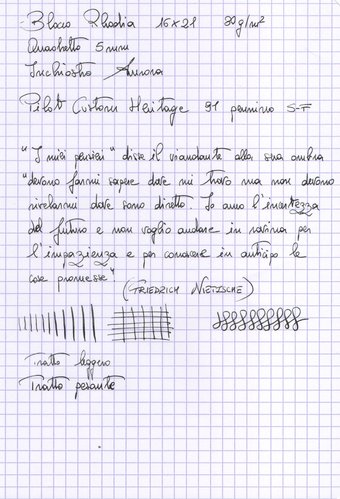 Blocco Rhodia 16x21 80g/m²
Quadretto 5mm
Inchiostro Aurora
Pilot Custom Heritage 91 pennino S-F
"I miei pensieri" disse il viandante alla sua ombra
"devono farmi sapere dove mi trovo ma non devono
rivelarmi dove sono diretto. Io amo l'incertezza
del futuro e non voglio andare in rovina per
l'impazienza e per conoscere in anticipo le
cose promesse"
(FRIEDRICH NIETZSCHE)
Tratto leggero
Tratto pesante